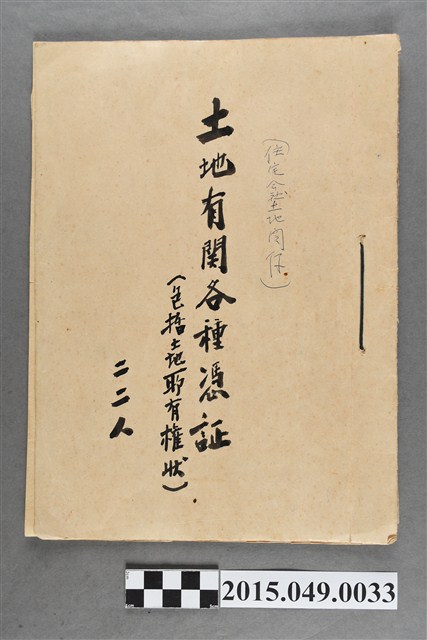 (住宅全基地関係)
土地有関各種憑証
(包括土地所有權狀)
二二人
2015.049.0033